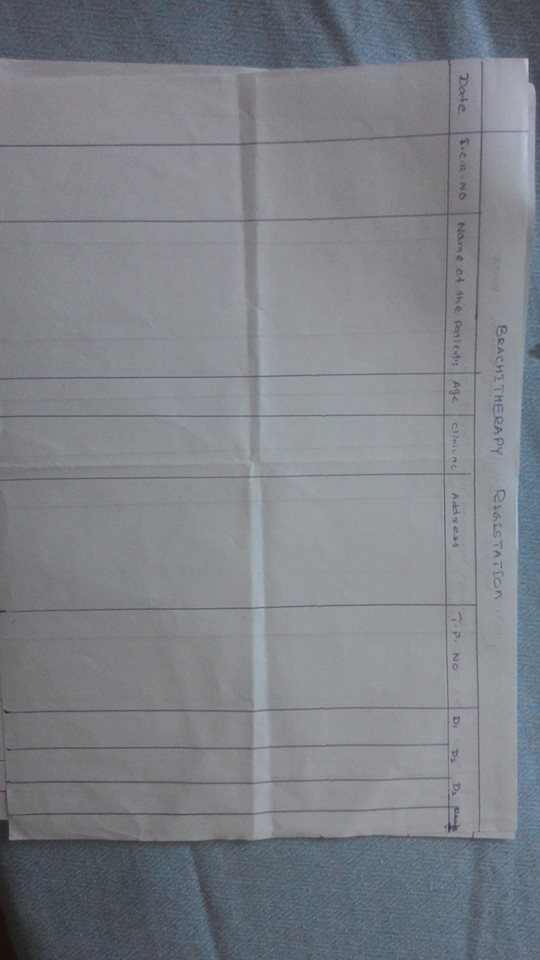 BRACHITHERAPY REGISTATION
Date NO Name of the Patients Age Clinic no Address T.P. NO D1 D2 D3